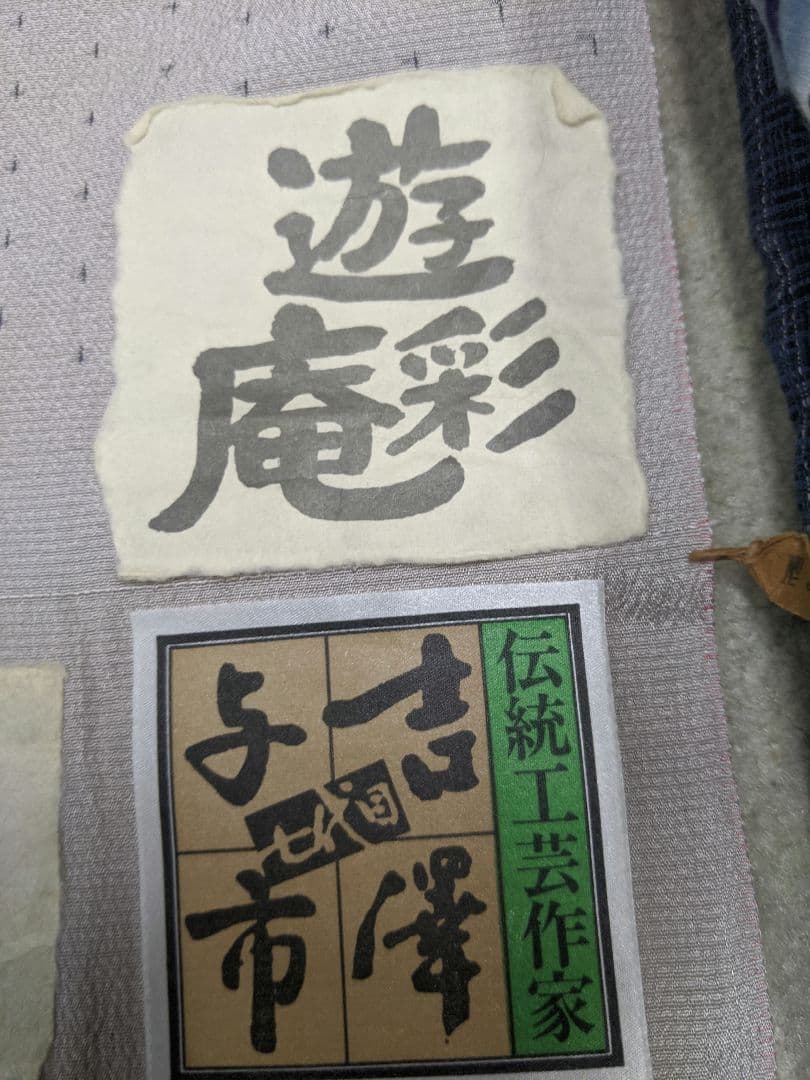 遊彩庵
伝統工芸作家
吉澤
与市